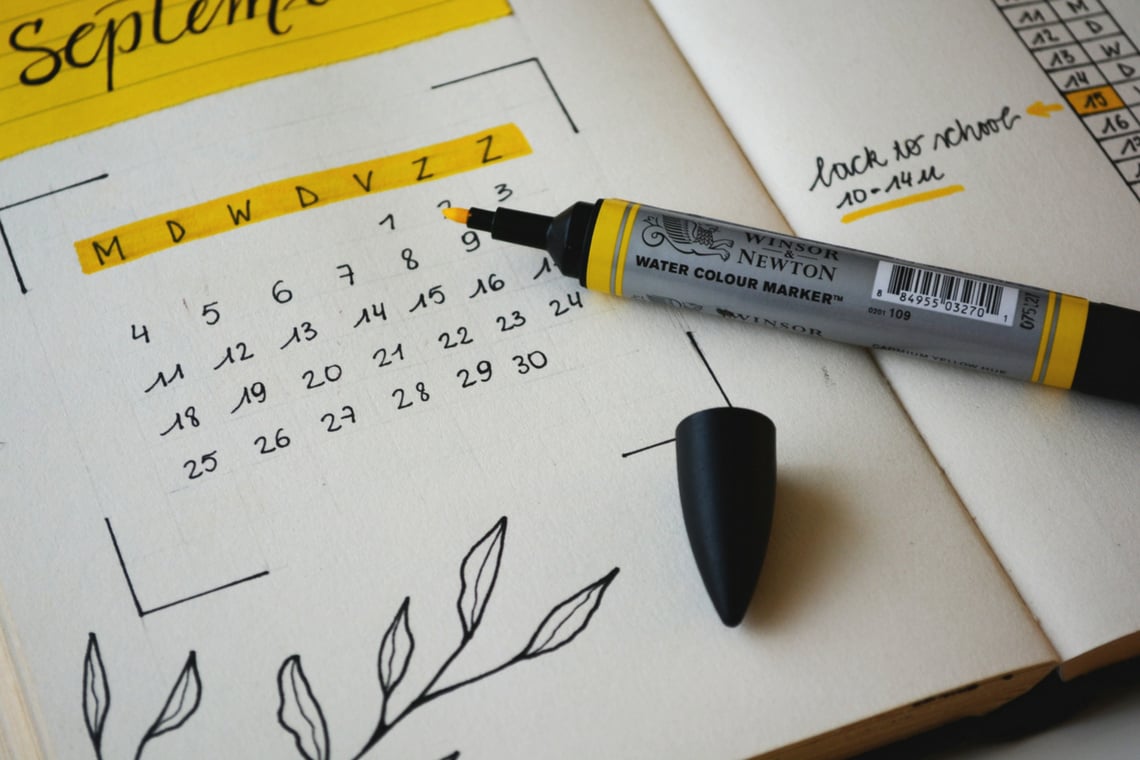 Septem
M D W D V Z Z
1 2 3
4 5 6 7 8 9
11 12 13 14 15 16 1
18 19 20 21 22 23 24
25 26 27 28 29 30
back to school
10-14u
11 M
12 D
13 W
14 D
15
16
WINSOR
&
NEWTON
WATER COLOUR MARKER™
WINSOR
0201 109
8 84955 03270 1
CADMIUM YELLOW HUE